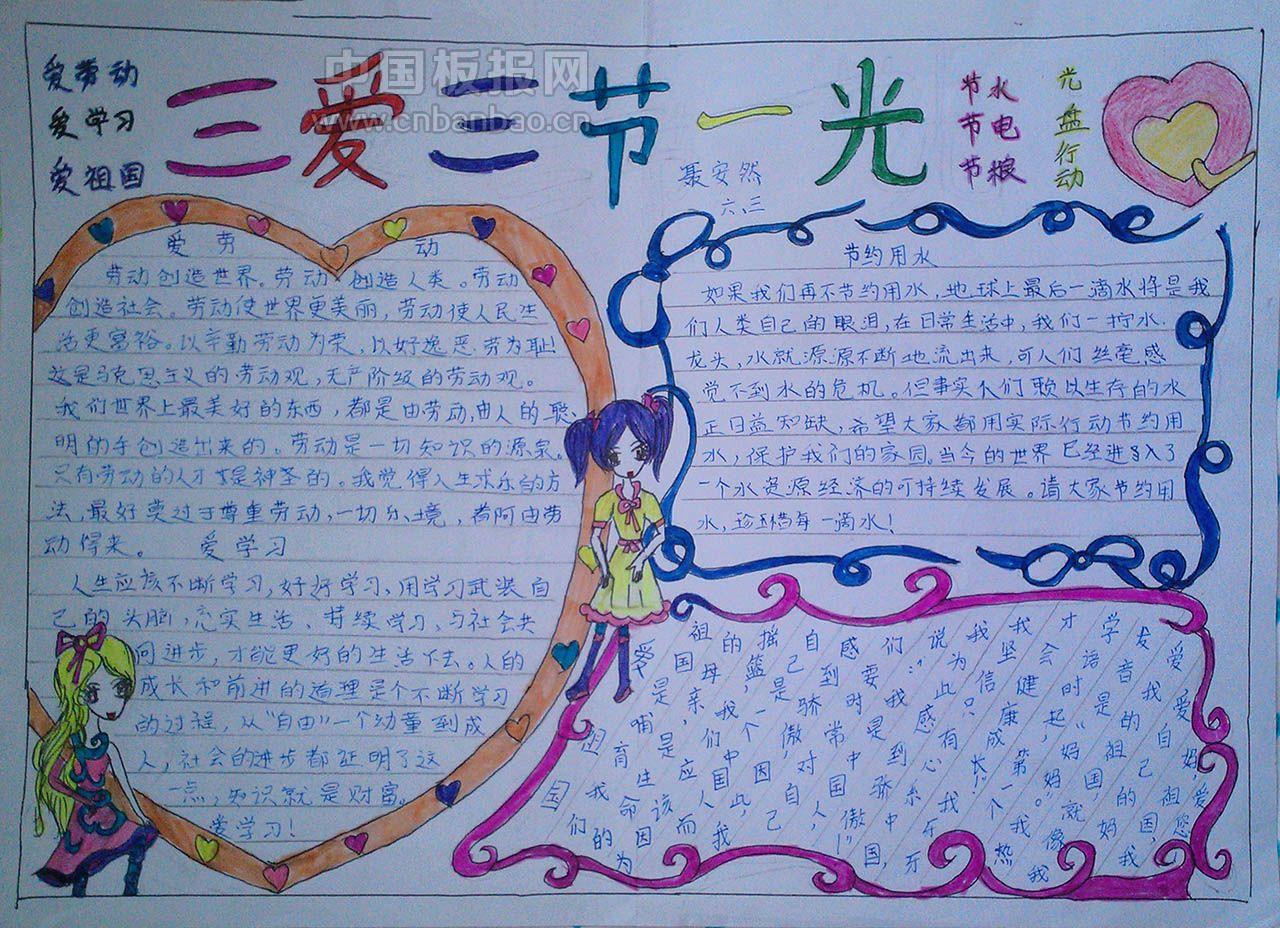 爱劳动
爱学习
爱祖国
三爱三节一光
节水
节电
节粮
光盘行动
中国板报网
www.cnbanbao.cn
聂安然
六、三
爱劳动
劳动创造世界。劳动创造人类。劳动
创造社会。劳动使世界更美丽，劳动使人民生
活更富裕。以辛勤劳动为荣，以好逸恶劳为耻！
这是马克思主义的劳动观，无产阶级的劳动观。
我们世界上最美好的东西，都是由劳动，由人的聪
明的手创造出来的。劳动是一切知识的源泉。
只有劳动的人才是神圣的。我觉得人生求乐的方
法，最好莫过于尊重劳动，一切乐境，着阿由劳
动得来。
爱学习
人生应该不断学习，好好学习、用学习武装自
己的头脑，充实生活、持续学习，与社会共
同进步，才能更好的生活下去。人的
成长和前进的道理是个不断学习
的过程，从“自由”一个幼童到成
人，社会的进步都证明了这
一点，知识就是财富。
爱学习！
节约用水
如果我们再不节约用水，地球上最后一滴水将是我
们人类自己的眼泪，在日常生活中，我们一拧水
龙头，水就源源不断地流出来，可人们丝毫感
觉不到水的危机。但事实人们赖以生存的水
正日益短缺，希望大家都用实际行动节约用
水，保护我们的家园。当今的世界已经进入了
一个水资源经济的可持续发展。请大家节约用
水，珍惜每一滴水！
爱祖国
祖国是哺育我们
的母亲，是生命的
摇篮，我们应该因为
自己是一个中国人而
感到骄傲，因此，我
们要时常对自己
说：“我是中国人，
我为此感到骄傲！”
我坚信只有心系中国，
才会健康成长。我牙牙
学语时，起第一个
发音是“妈妈”。我热
爱我的祖国就像我
爱自己的妈